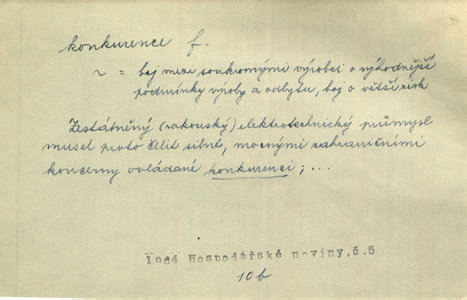 konkurence f.
~ = boj mezi soukromými výrobci o výhodnější
podmínky výroby a odbytu, boj o větší zisk
Zestátněný (rakouský) elektrotechnický průmysl
musel proto čelit silné, mocnými zahraničními
koncerny ovládané konkurenci; ...
1964 Hospodářské noviny, č.5
10b